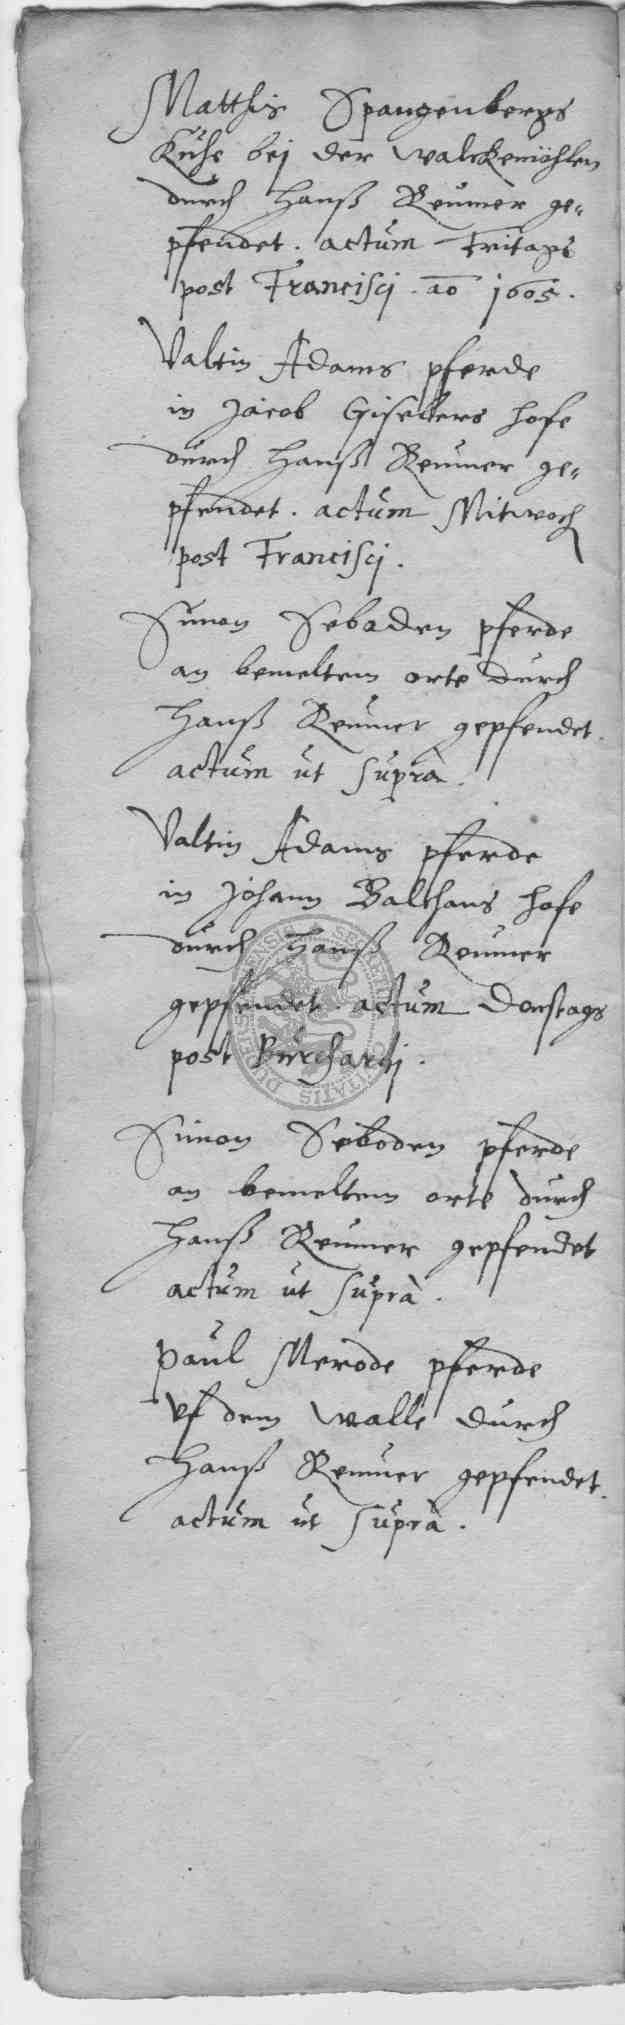 Matthis Spangenbergs
Kuhe bej der walckemöhlen
durch Hanß Reumer ge-
pfendet. actum Fritags
post Francisci. ao 1605.
Valtin Adams pferde
in Jacob Giselers hofe
durch Hanß Reumer ge-
pfendet. actum Mitwoch
post Francisci.
Simon Seboden pferde
an bemeltem orte durch
Hanß Reumer gepfendet.
actum ut suprà.
Valtin Adams pferde
in Johann Balthaus hofe
durch Hanß Reumer
gepfendet. actum Donstags
post Burchardj.
Simon Seboden pferde
an bemeltem orte durch
Hanß Reumer gepfendet
actum ut suprà.
Paul Merode pferde
vf dem walle durch
Hanß Reumer gepfendet.
actum ut suprà.